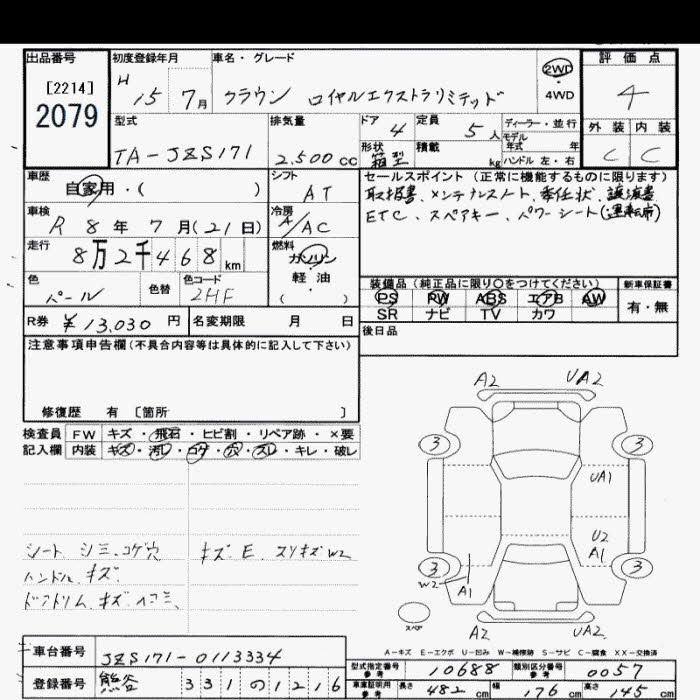 出品番号
[2214]
2079
初度登録年月
H 15 7 月
車名・グレード
クラウン ロイヤルエクストラリミテッド
2WD
・
4WD
評価点
4
外装 内装
C C
型式
TA-JZS171
排気量
2,500 cc
ドア 4
定員 5 人
形状 箱型
積載 kg
ディーラー・並行
モデル
年式 年
ハンドル 左・右
車歴
自家用・( )
シフト
AT
車検
R 8 年 7 月 (21 日)
冷房
A/AC
走行
8万2千468 km
燃料
ガソリン
・
軽油
( )
色
パール
色替
色コード
2HF
R券 ¥13,030 円
名変期限 月 日
セールスポイント (正常に機能するものに限ります)
取扱書、メンテナンスノート、委任状、譲渡書
ETC、スペアキー、パワーシート(運転席)
装備品 (純正品に限り〇をつけてください)
PS PW ABS エアB AW
SR ナビ TV カワ
新車保証書
有・無
後日品
注意事項申告欄 (不具合内容等は具体的に記入して下さい)
修復歴 有 〔箇所 〕
検査員 FW キズ・飛石・ヒビ割・リペア跡・×要
記入欄 内装 キズ・汚レ・コゲ・穴・スレ・キレ・破レ
シート シミ、コゲ穴
ハンドル キズ
ドアトリム、キズ、ヘコミ、
キズ・E スリキズW2
A2 UA2
3 3
UA1
U2
A1
3 3
W2
A1
スペア
A2 UA2
A-キズ E-エクボ U-凹み W-補修跡 S-サビ C-腐食 XX-交換済
車台番号 JZS171-0113334
登録番号 熊谷 331 の 1216
型式指定番号 参考 10688
類別区分番号 参考 0057
車庫証明用 参考 長さ 482 cm 幅 176 cm 高さ 145 cm